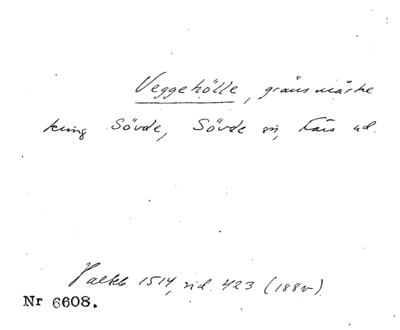 Veggehölle, gränsmärke
kring Sövde, Sövde sn, Färs hd.
Palteb. 1514, sid. 423 (188v)
Nr 6608.